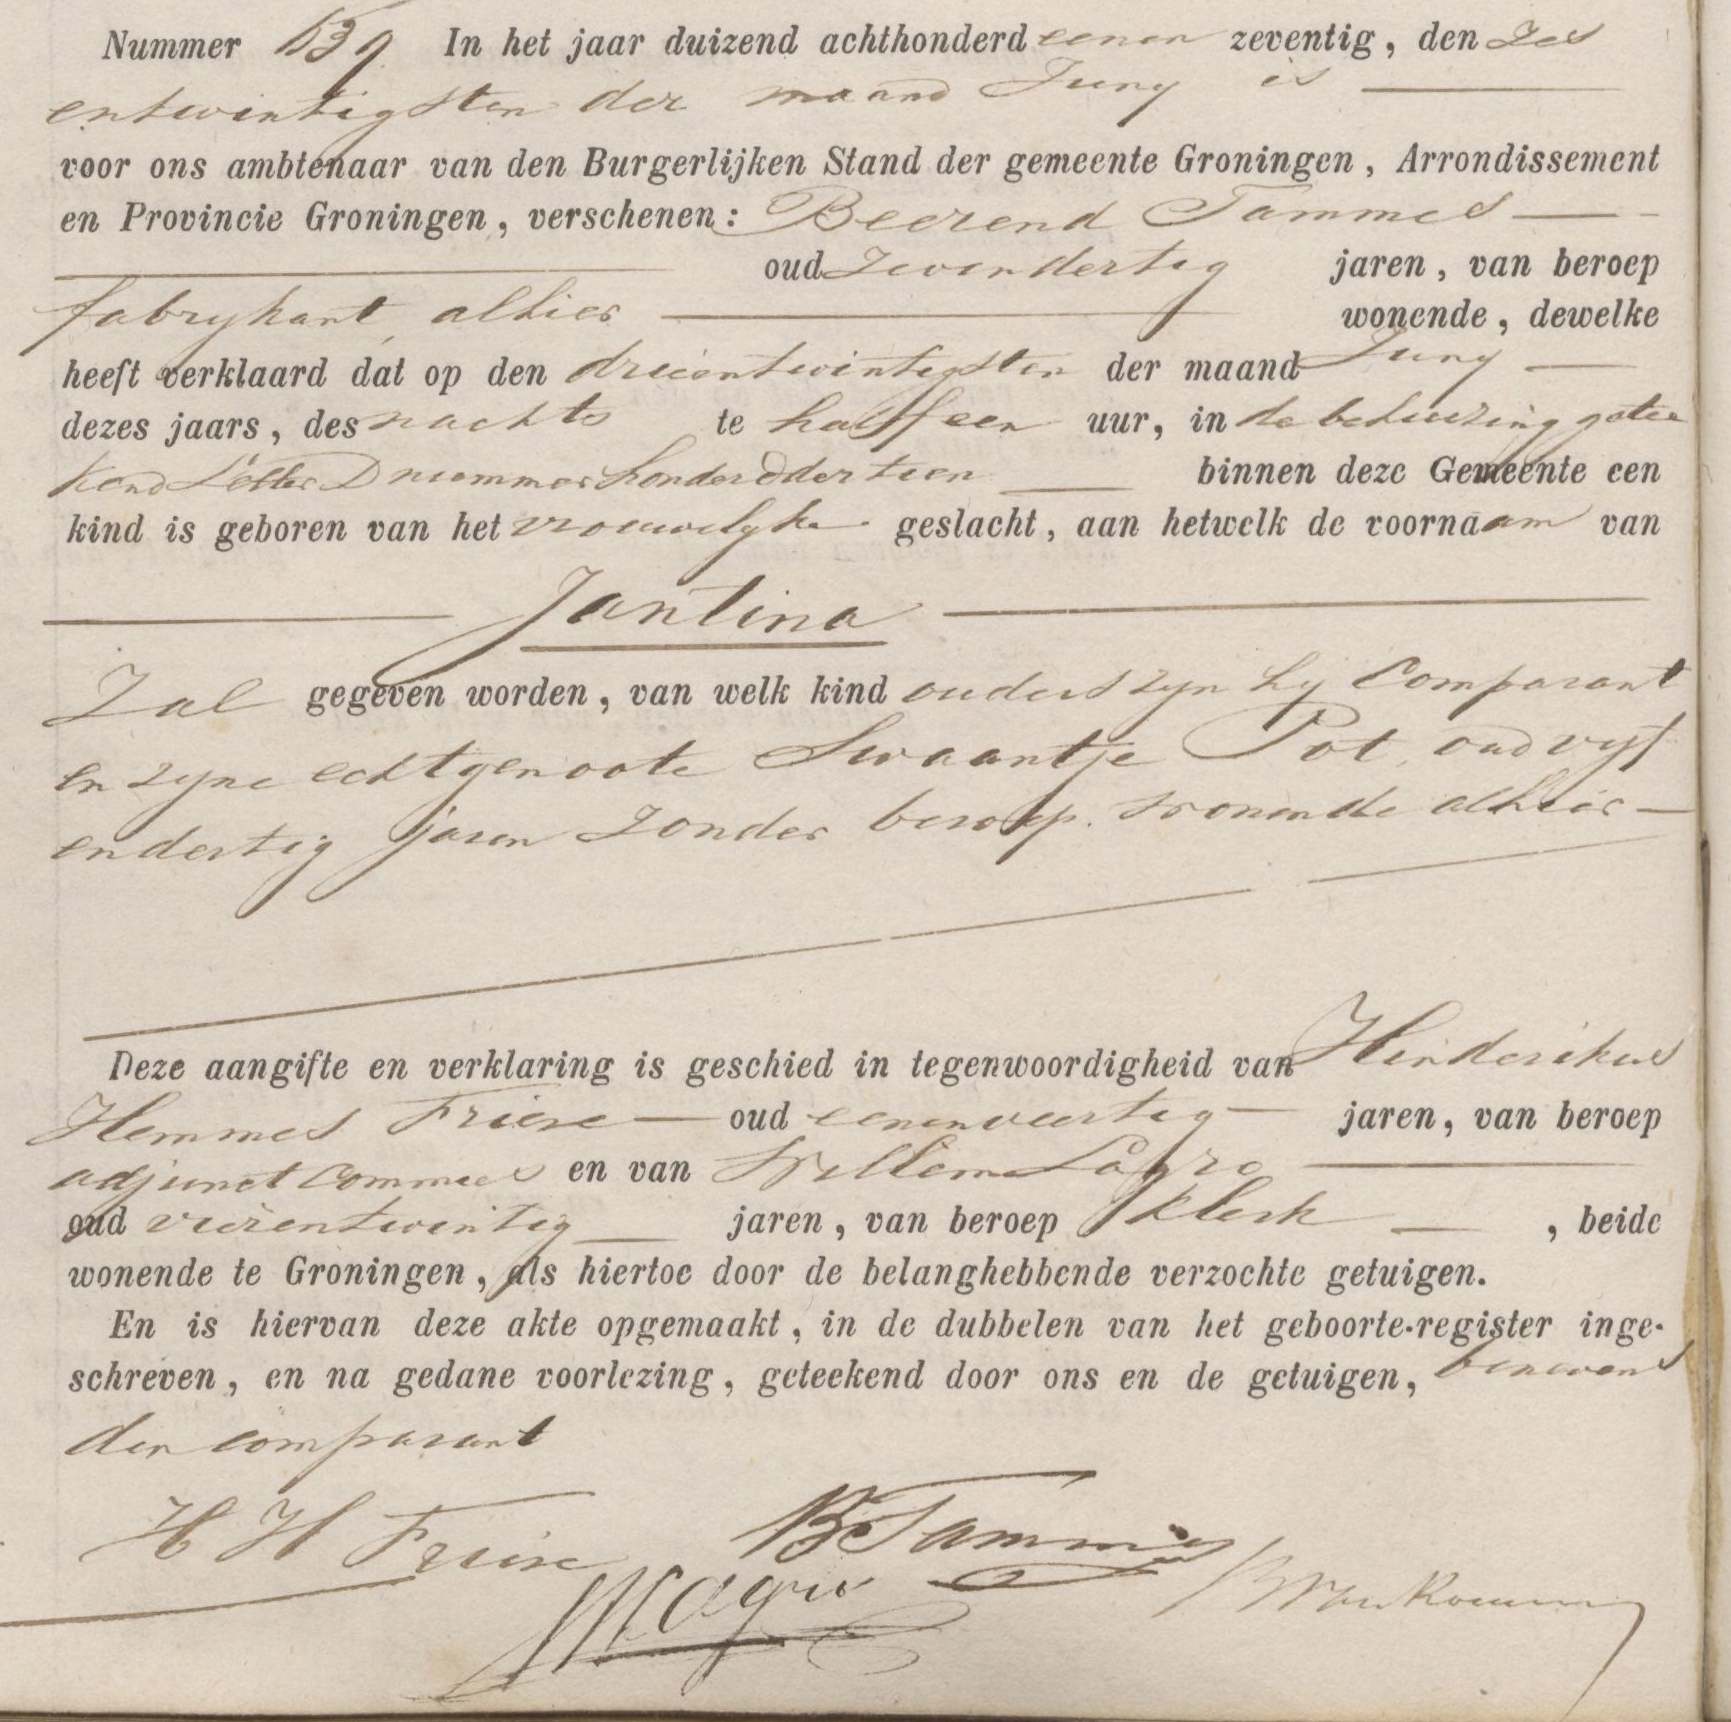 Nummer 639 In het jaar duizend achthonderd eenen zeventig, den Zes
entwintigsten der maand Juny is
voor ons ambtenaar van den Burgerlijken Stand der gemeente Groningen, Arrondissement
en Provincie Groningen, verschenen: Beerend Tammes
oud zevendertig jaren, van beroep
fabrykant, alhier wonende, dewelke
heeft verklaard dat op den drieentwintigsten der maand Juny
dezes jaars, des nachts te half een uur, in de behuizing getee
kend Letter D nummer honderd dertien binnen deze Gemeente een
kind is geboren van het vrouwelyke geslacht, aan hetwelk de voornaam van
Jantina
Zal gegeven worden, van welk kind ouders zyn hy Comparant
en zyne echtgenoote Swaantje Pot, oud vyf
endertig jaren zonder beroep. wonende alhier
Deze aangifte en verklaring is geschied in tegenwoordigheid van Hinderikus
Hemmes Friese oud eenenveertig jaren, van beroep
adjunct Commies en van Willem Lagro
oud vierentwintig jaren, van beroep klerk, beide
wonende te Groningen, als hiertoe door de belanghebbende verzochte getuigen.
En is hiervan deze akte opgemaakt, in de dubbelen van het geboorte-register inge-
schreven, en na gedane voorlezing, geteekend door ons en de getuigen, benevens
den comparant
H H Friese B Tammes
WLagro